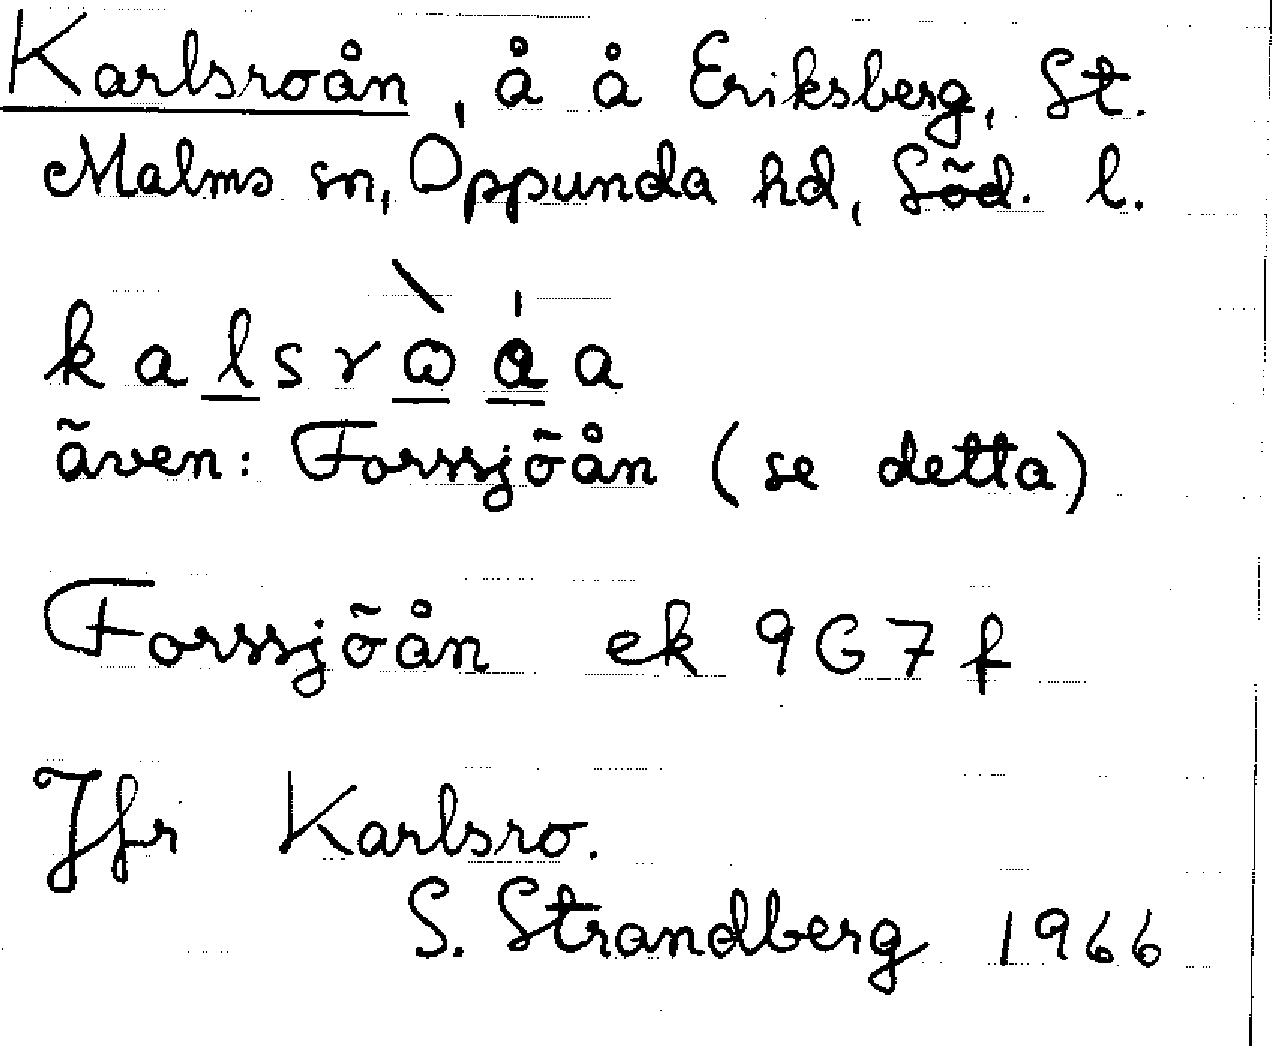 Karlsroån, å å Eriksberg, St.
Malms sn, Oppunda hd, Söd. l.
kalsrωåa
även: Forssjöån (se detta)
Forssjöån ek 9G7f
Jfr Karlsro.
S. Strandberg 1966